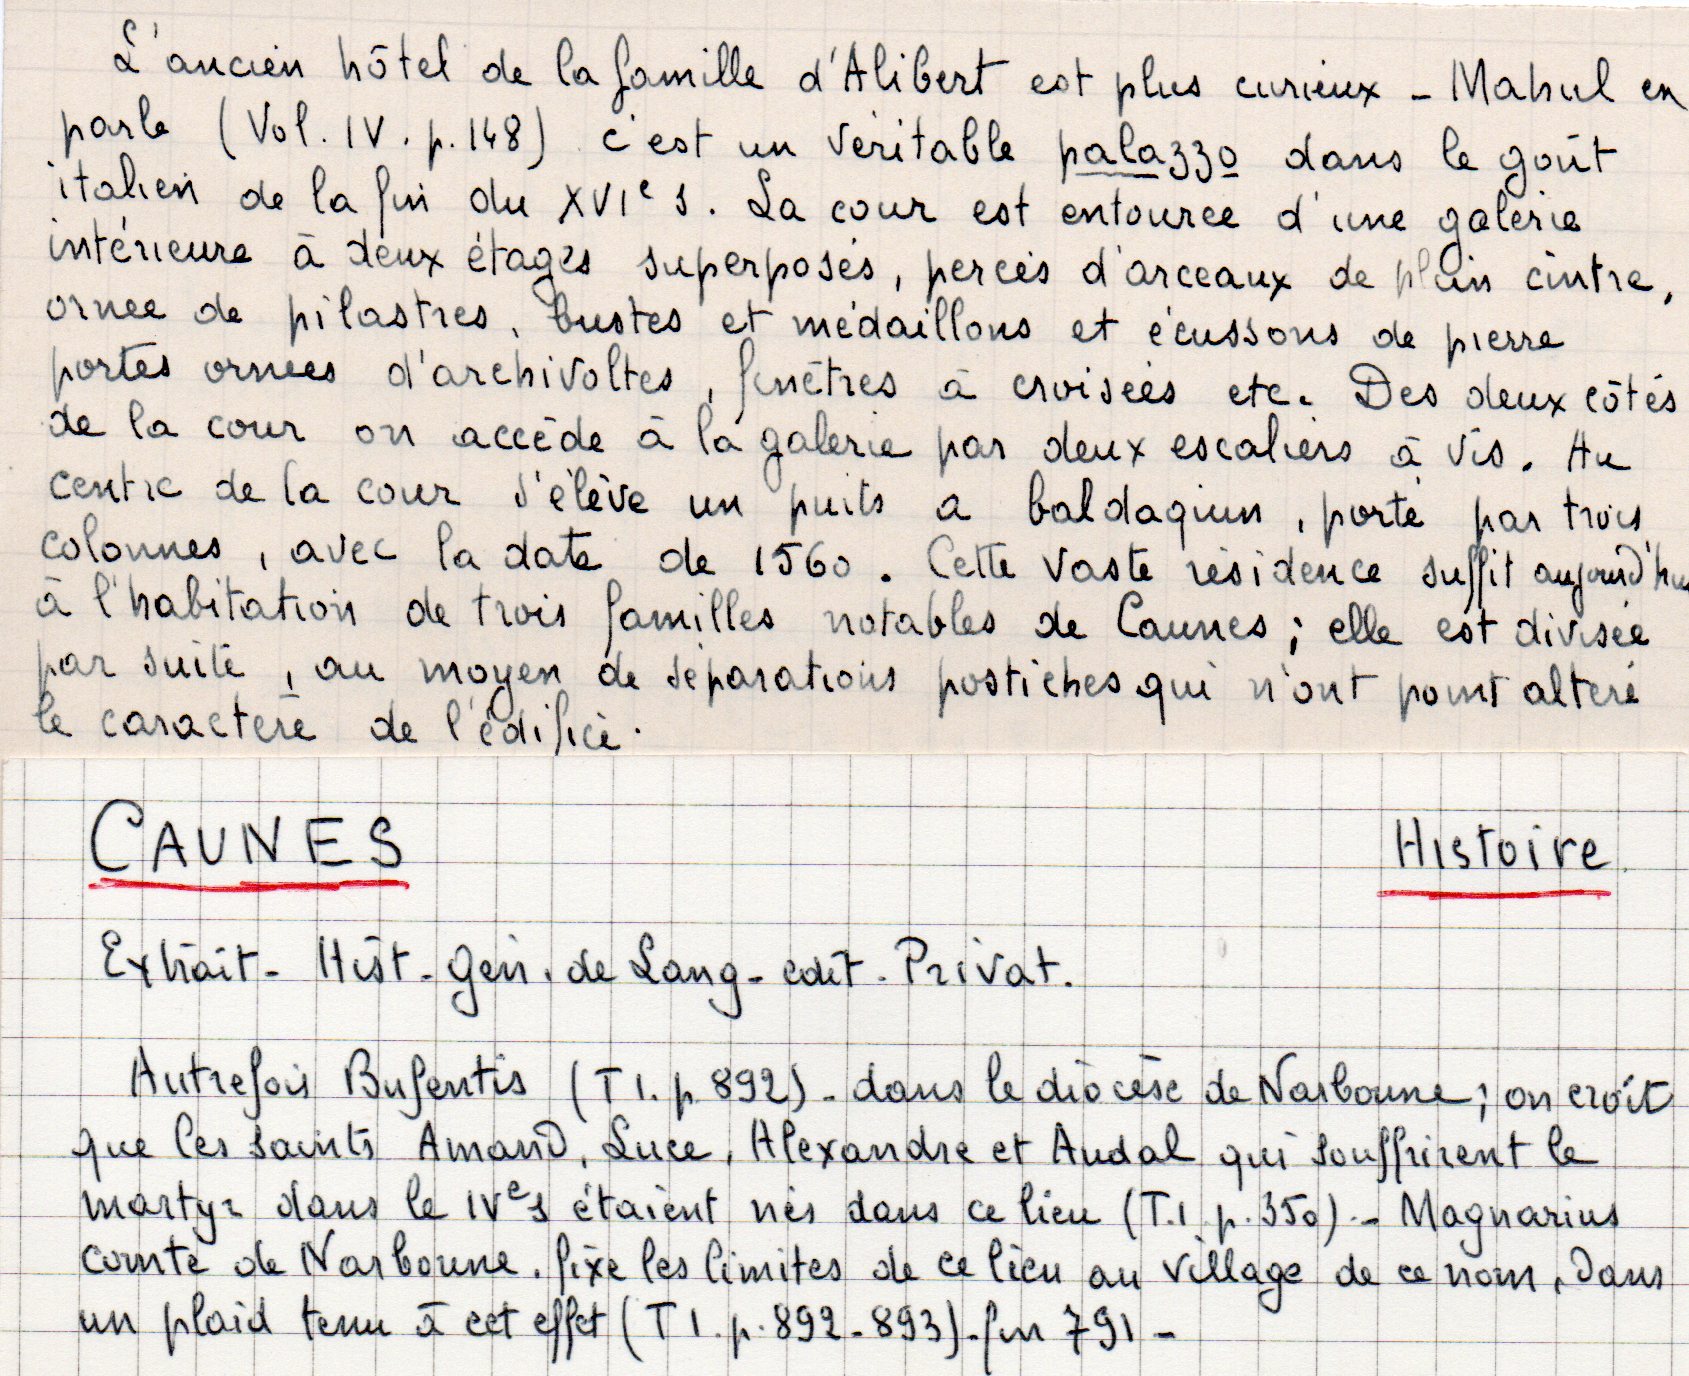 L'ancien hôtel de la famille d'Alibert est plus curieux - Mahul en
parle (Vol. IV. p. 148) c'est un véritable palazzo dans le goût
italien de la fin du XVIe s. La cour est entourée d'une galerie
intérieure à deux étages superposés, percés d'arceaux de plein cintre,
ornée de pilastres, bustes et médaillons et écussons de pierre
portes ornées d'archivoltes, fenêtres à croisées etc. Des deux côtés
de la cour on accède à la galerie par deux escaliers à vis. Au
centre de la cour s'élève un puits a baldaquin, porté par trois
colonnes, avec la date de 1560. Cette vaste résidence suffit aujourd'hui
à l'habitation de trois familles notables de Caunes; elle est divisée
par suite, au moyen de séparations postiches qui n'ont point altéré
le caractère de l'édifice.
CAUNES Histoire
Extrait - Hist - Gén. de Lang - edit - Privat.
Autrefois Bufentis (T I. p 892) - dans le diocèse de Narbonne; on croit
que les saints Amand, Luce, Alexandre et Audal qui souffrirent le
martyr dans le IVe s étaient nés dans ce lieu (T.I p. 350) - Magnarius
comte de Narbonne. fixe les limites de ce lieu au village de ce nom, dans
un plaid tenu à cet effet (T I. p. 892-893) - fin 791 -